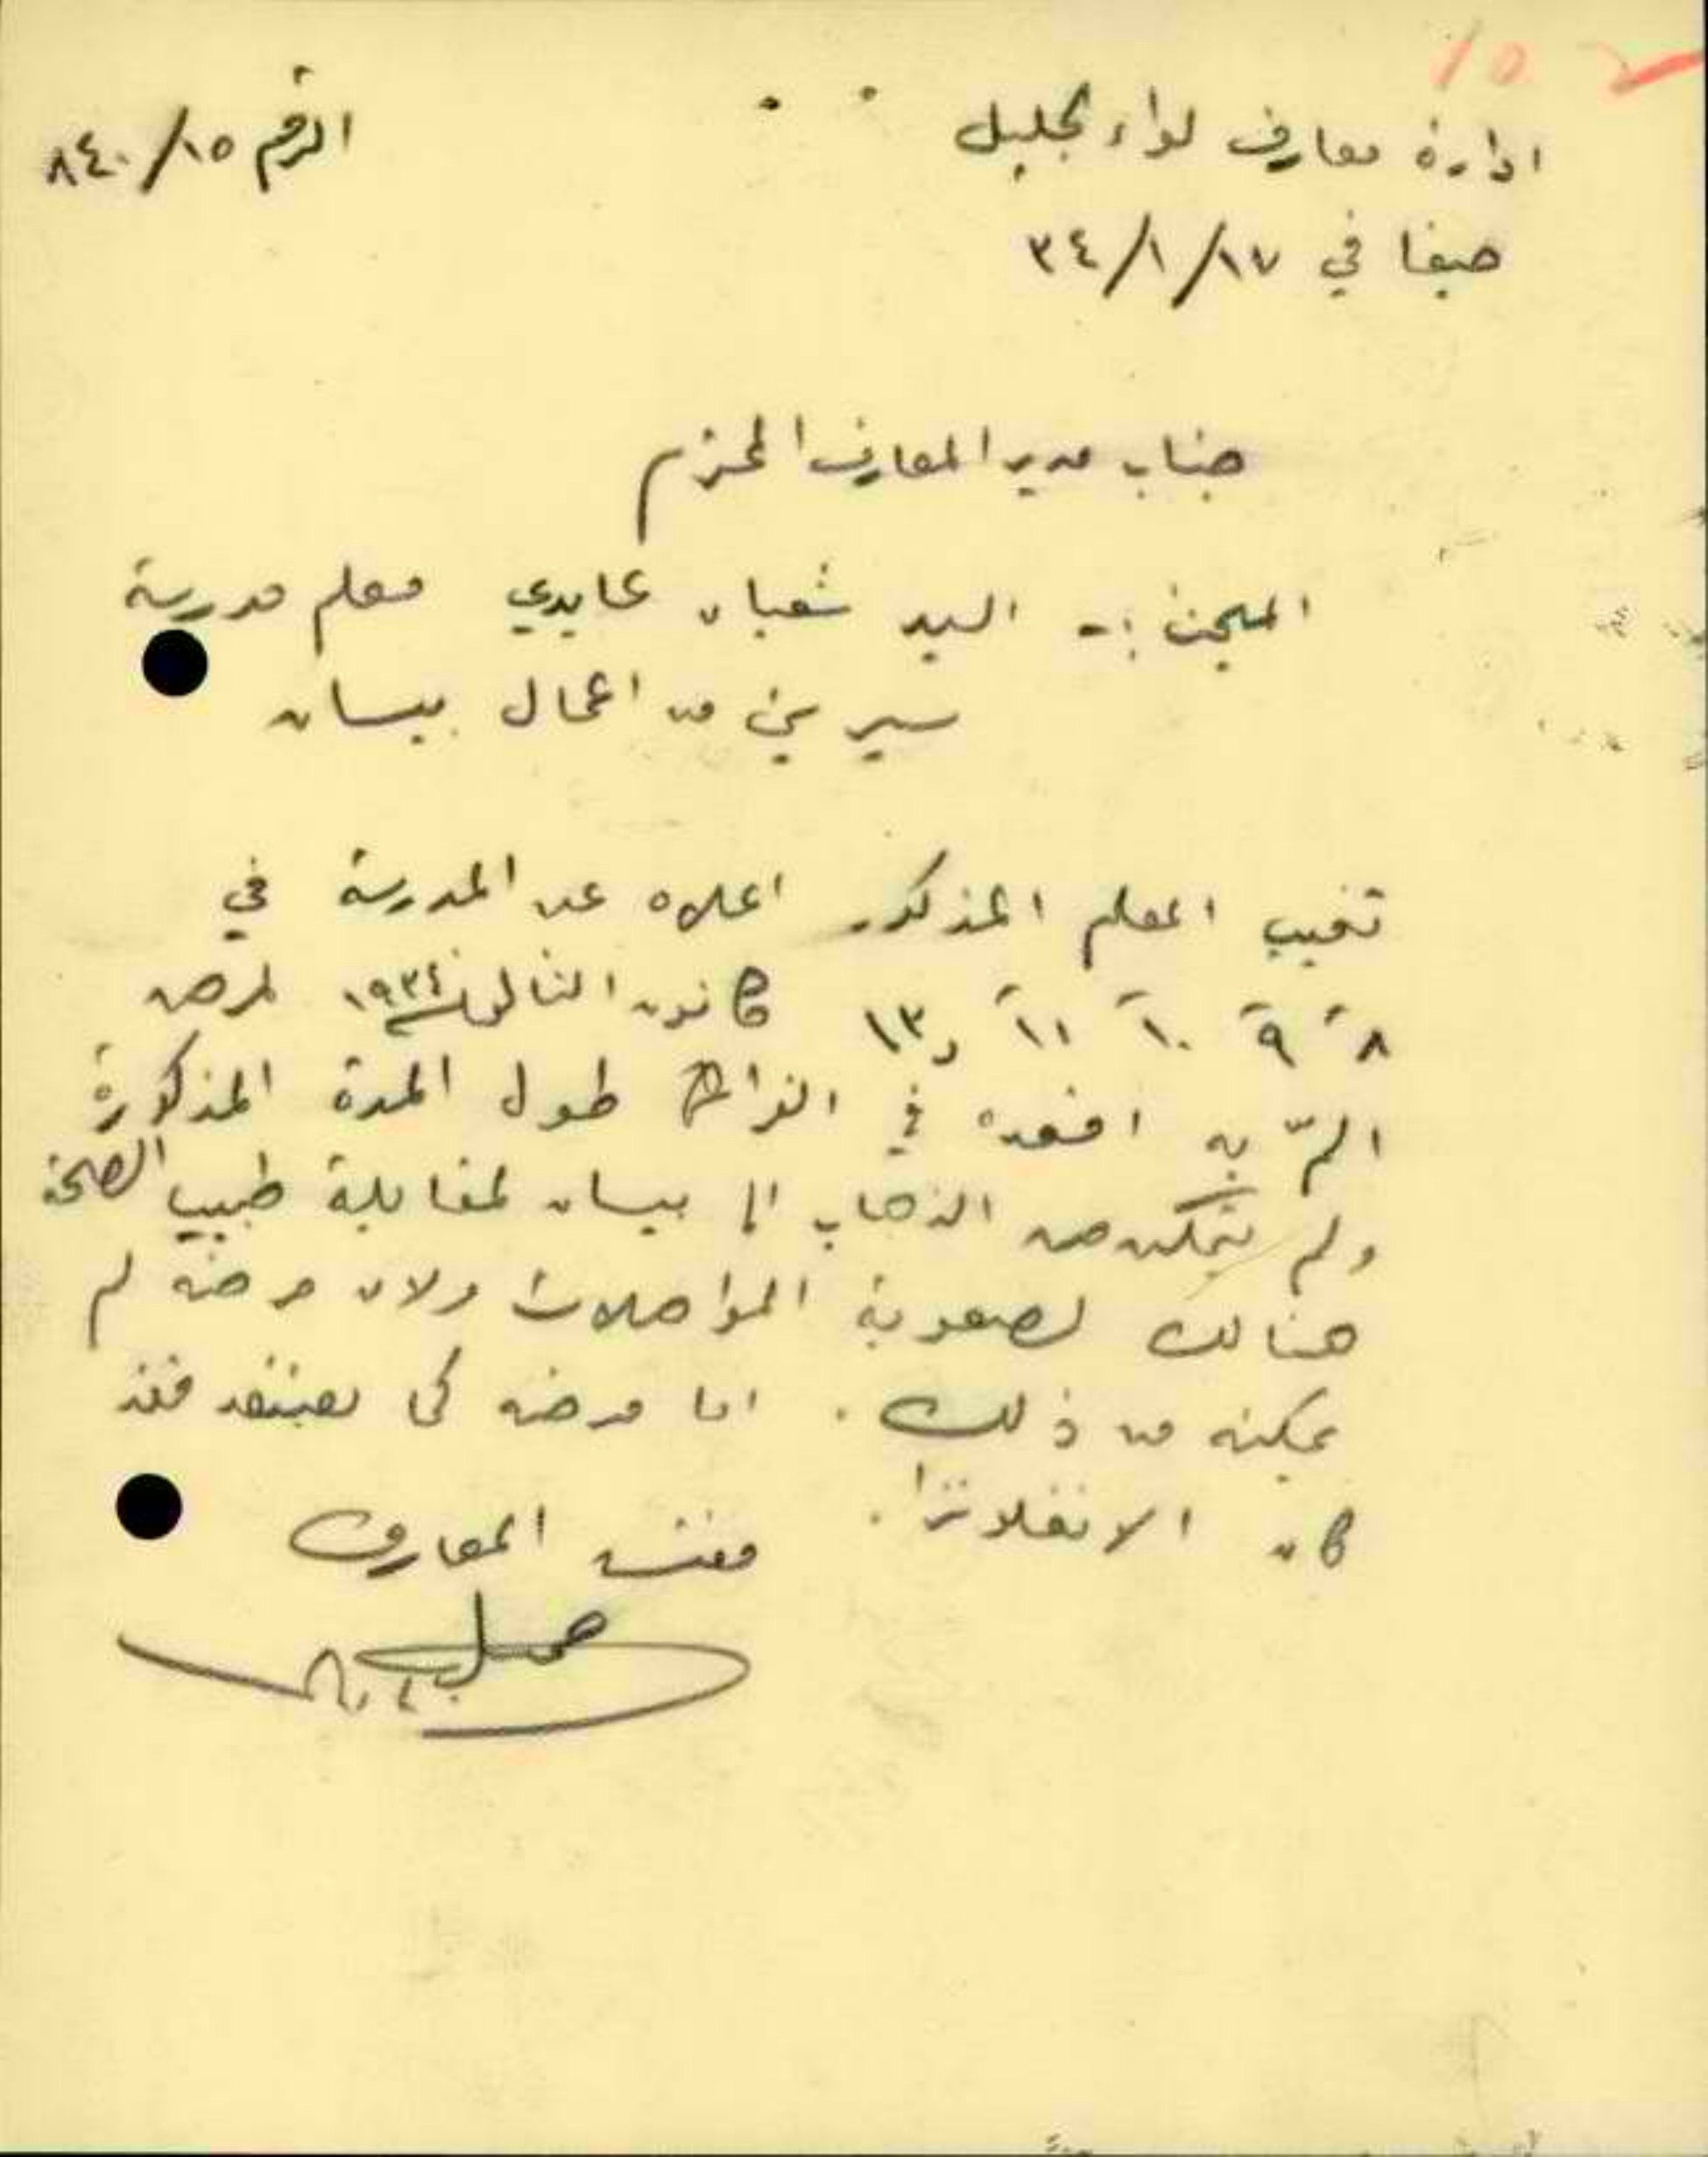 ١٥
ادارة معارف لواء الجليل
الرقم ١٥/٨٤٠
حيفا في ١٧/١/٣٤
جناب مدير المعارف المحترم
المبحث :- السيد شعبان عايدي معلم مدرسة
سيرين من اعمال بيسان
تغيب المعلم المذكور اعلاه عن المدرسة في
٨ ٩ ١٠ ١١ و١٣ كانون الثاني سنة ١٩٣٤ لمرض
المّ به اقعده في الفراش طول المدة المذكورة
ولم يتمكن من الذهاب الى بيسان لمقابلة طبيب الصحة
هنالك لصعوبة المواصلات ولان مرضه لم
يمكنه من ذلك. اما مرضه كما يعتقد فقد
كان الانفلونزا.
مفتش المعارف